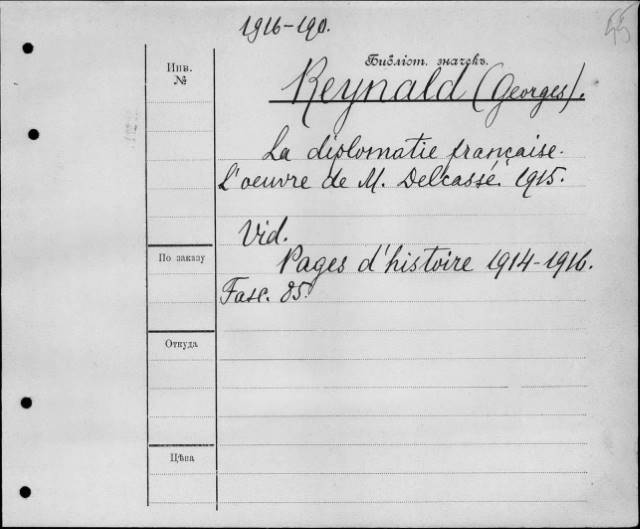 1916-190.
Библіот. значекъ.
Инв.
№
Reynald (Georges).
La diplomatie française.
L'oeuvre de M. Delcassé. 1915.
Vid.
По заказу
Pages d'histoire 1914-1916.
Fasc. 85.
Откуда
Цѣна